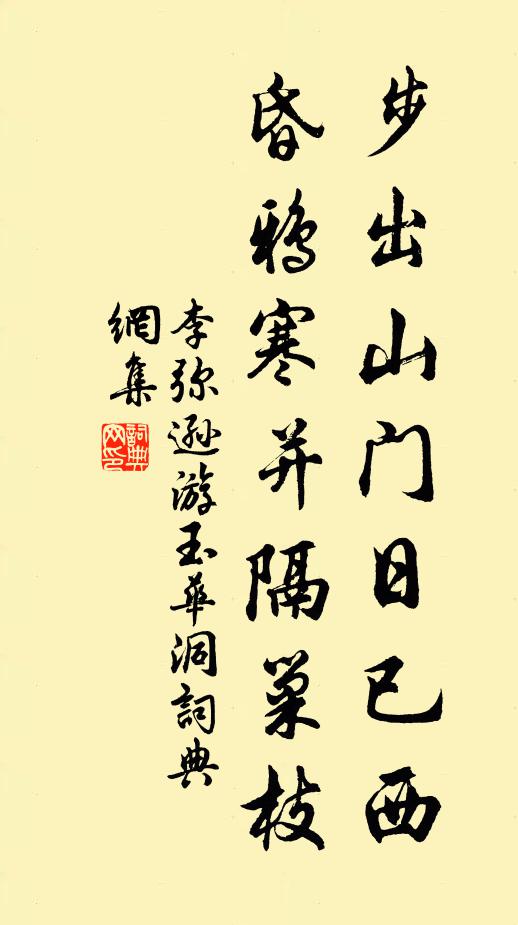 步出山门日已西
昏鸦寒并隔巢枝
李弥逊游玉華洞詞典
網集
詞典
网印